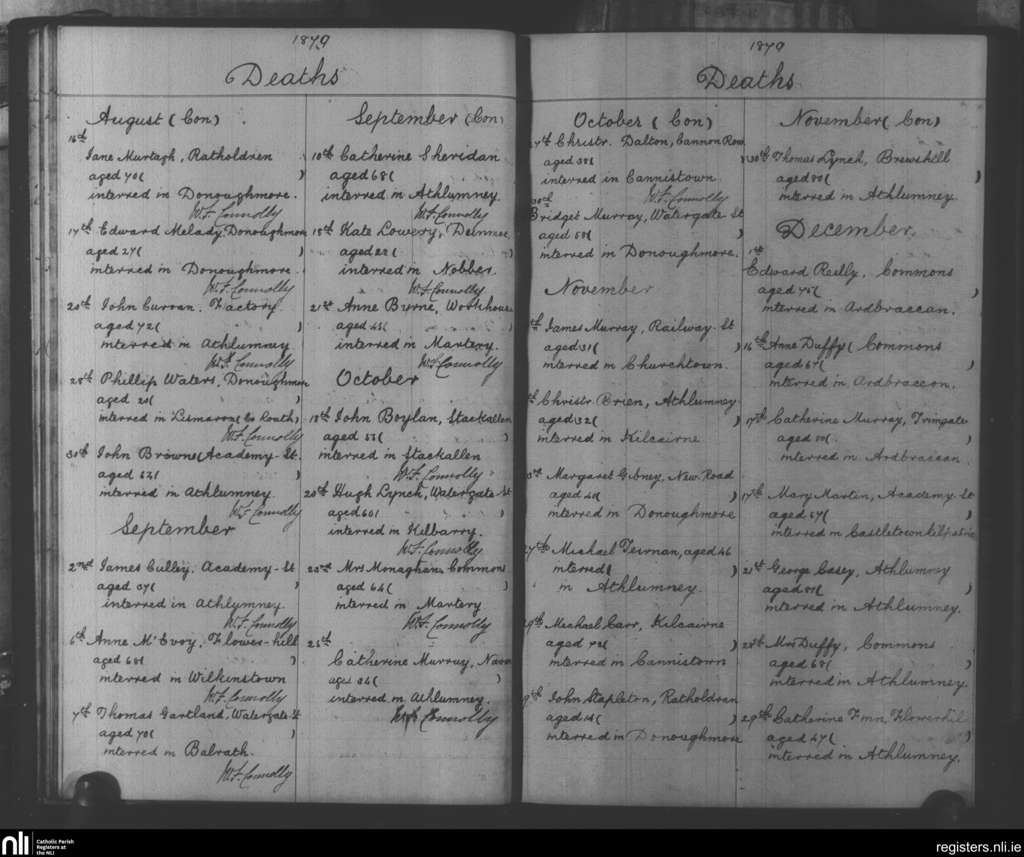 1879
Deaths
August (Con)
16th
Jane Murtagh, Ratholdren
aged 70( )
interred in Donoughmore.
W.F. Connolly
17th Edward Melady, Donoughmore
aged 27( )
interred in Donoughmore.
W.F. Connolly
20th John Curran, Factory.
aged 72( )
interred in Athlumney
W.F. Connolly
28th Phillip Waters, Donoughmore
aged )
interred in
W.F. Connolly
30th John Browne (Academy-St.
aged )
interred in Athlumney.
W.F. Connolly
September
2nd James Culley, Academy-St
aged 37( )
interred in Athlymney.
W.F. Connolly
6th Anne McEvoy, Flower-hill
aged 68( )
interred in Wilkinstown
W.F. Connolly
7th Thomas Gartland, Watergate St
aged 70( )
interred in Balrath.
W.F. Connolly
September (Con)
10th Catherine Sheridan
aged 68( )
interred in Athlumney.
W.F. Connolly
15th Kate Lowery,
aged )
interred in Nobber.
W.F. Connolly
21st Anne Byrne, Workhouse
aged )
interred in Martery.
W.F. Connolly
October
18th John Boylan, Stackallen
aged )
interred in Stackallen
W.F. Connolly
20th Hugh Lynch, Watergate-St
aged 60( )
interred in Kilbarry.
W.F. Connolly
Mrs Monaghan, Commons
aged 64( )
interred in Martery
W.F. Connolly
Catherine Murray,
aged )
interred in Athlumney.
W.F. Connolly
1879
Deaths
October (Con)
Christr. Dalton, Cannon Row
aged 38( )
interred in Cannistown.
W.F. Connolly
30th
Bridget Murray, Watergate St
aged )
interred in Donoughmore.
November
James Murray, Railway-St
aged 31( )
interred in Churchtown.
Christr Brien, Athlumney
aged 32( )
interred in Kilcairne
Margaret Gibney, New Road
aged )
interred in Donoughmore
27th Michael Teirnan, aged 46
interred( )
in Athlumney.
Michael Carr, Kilcairne
aged 72( )
interred in Cannistown
John Stapleton, Ratholdran
aged )
interred in Donoughmore
November (Con)
30th Thomas Lynch, Brewshill
aged 80( )
interred in Athlumney.
December.
1st
Edward Reilly, Commons
aged )
interred in Ardbraccan.
16th Anne Duffy( Commons
aged 67( )
interred in Ardbraccan.
17th Catherine Murray, Trimgate
aged )
interred in Ardbraccan.
17th Mary Martin, Academy-St
aged 67( )
interred in Castletown Kilpatric
21st George Casey, Athlumney
aged )
interred in Athlumney.
28th Mrs Duffy, Commons
aged 68( )
interred in Athlumney.
29th Catherine Finn, Flowerhill
aged 47( )
interred in Athlumney.
nli
Catholic Parish
Registers at
the NLI
registers.nli.ie